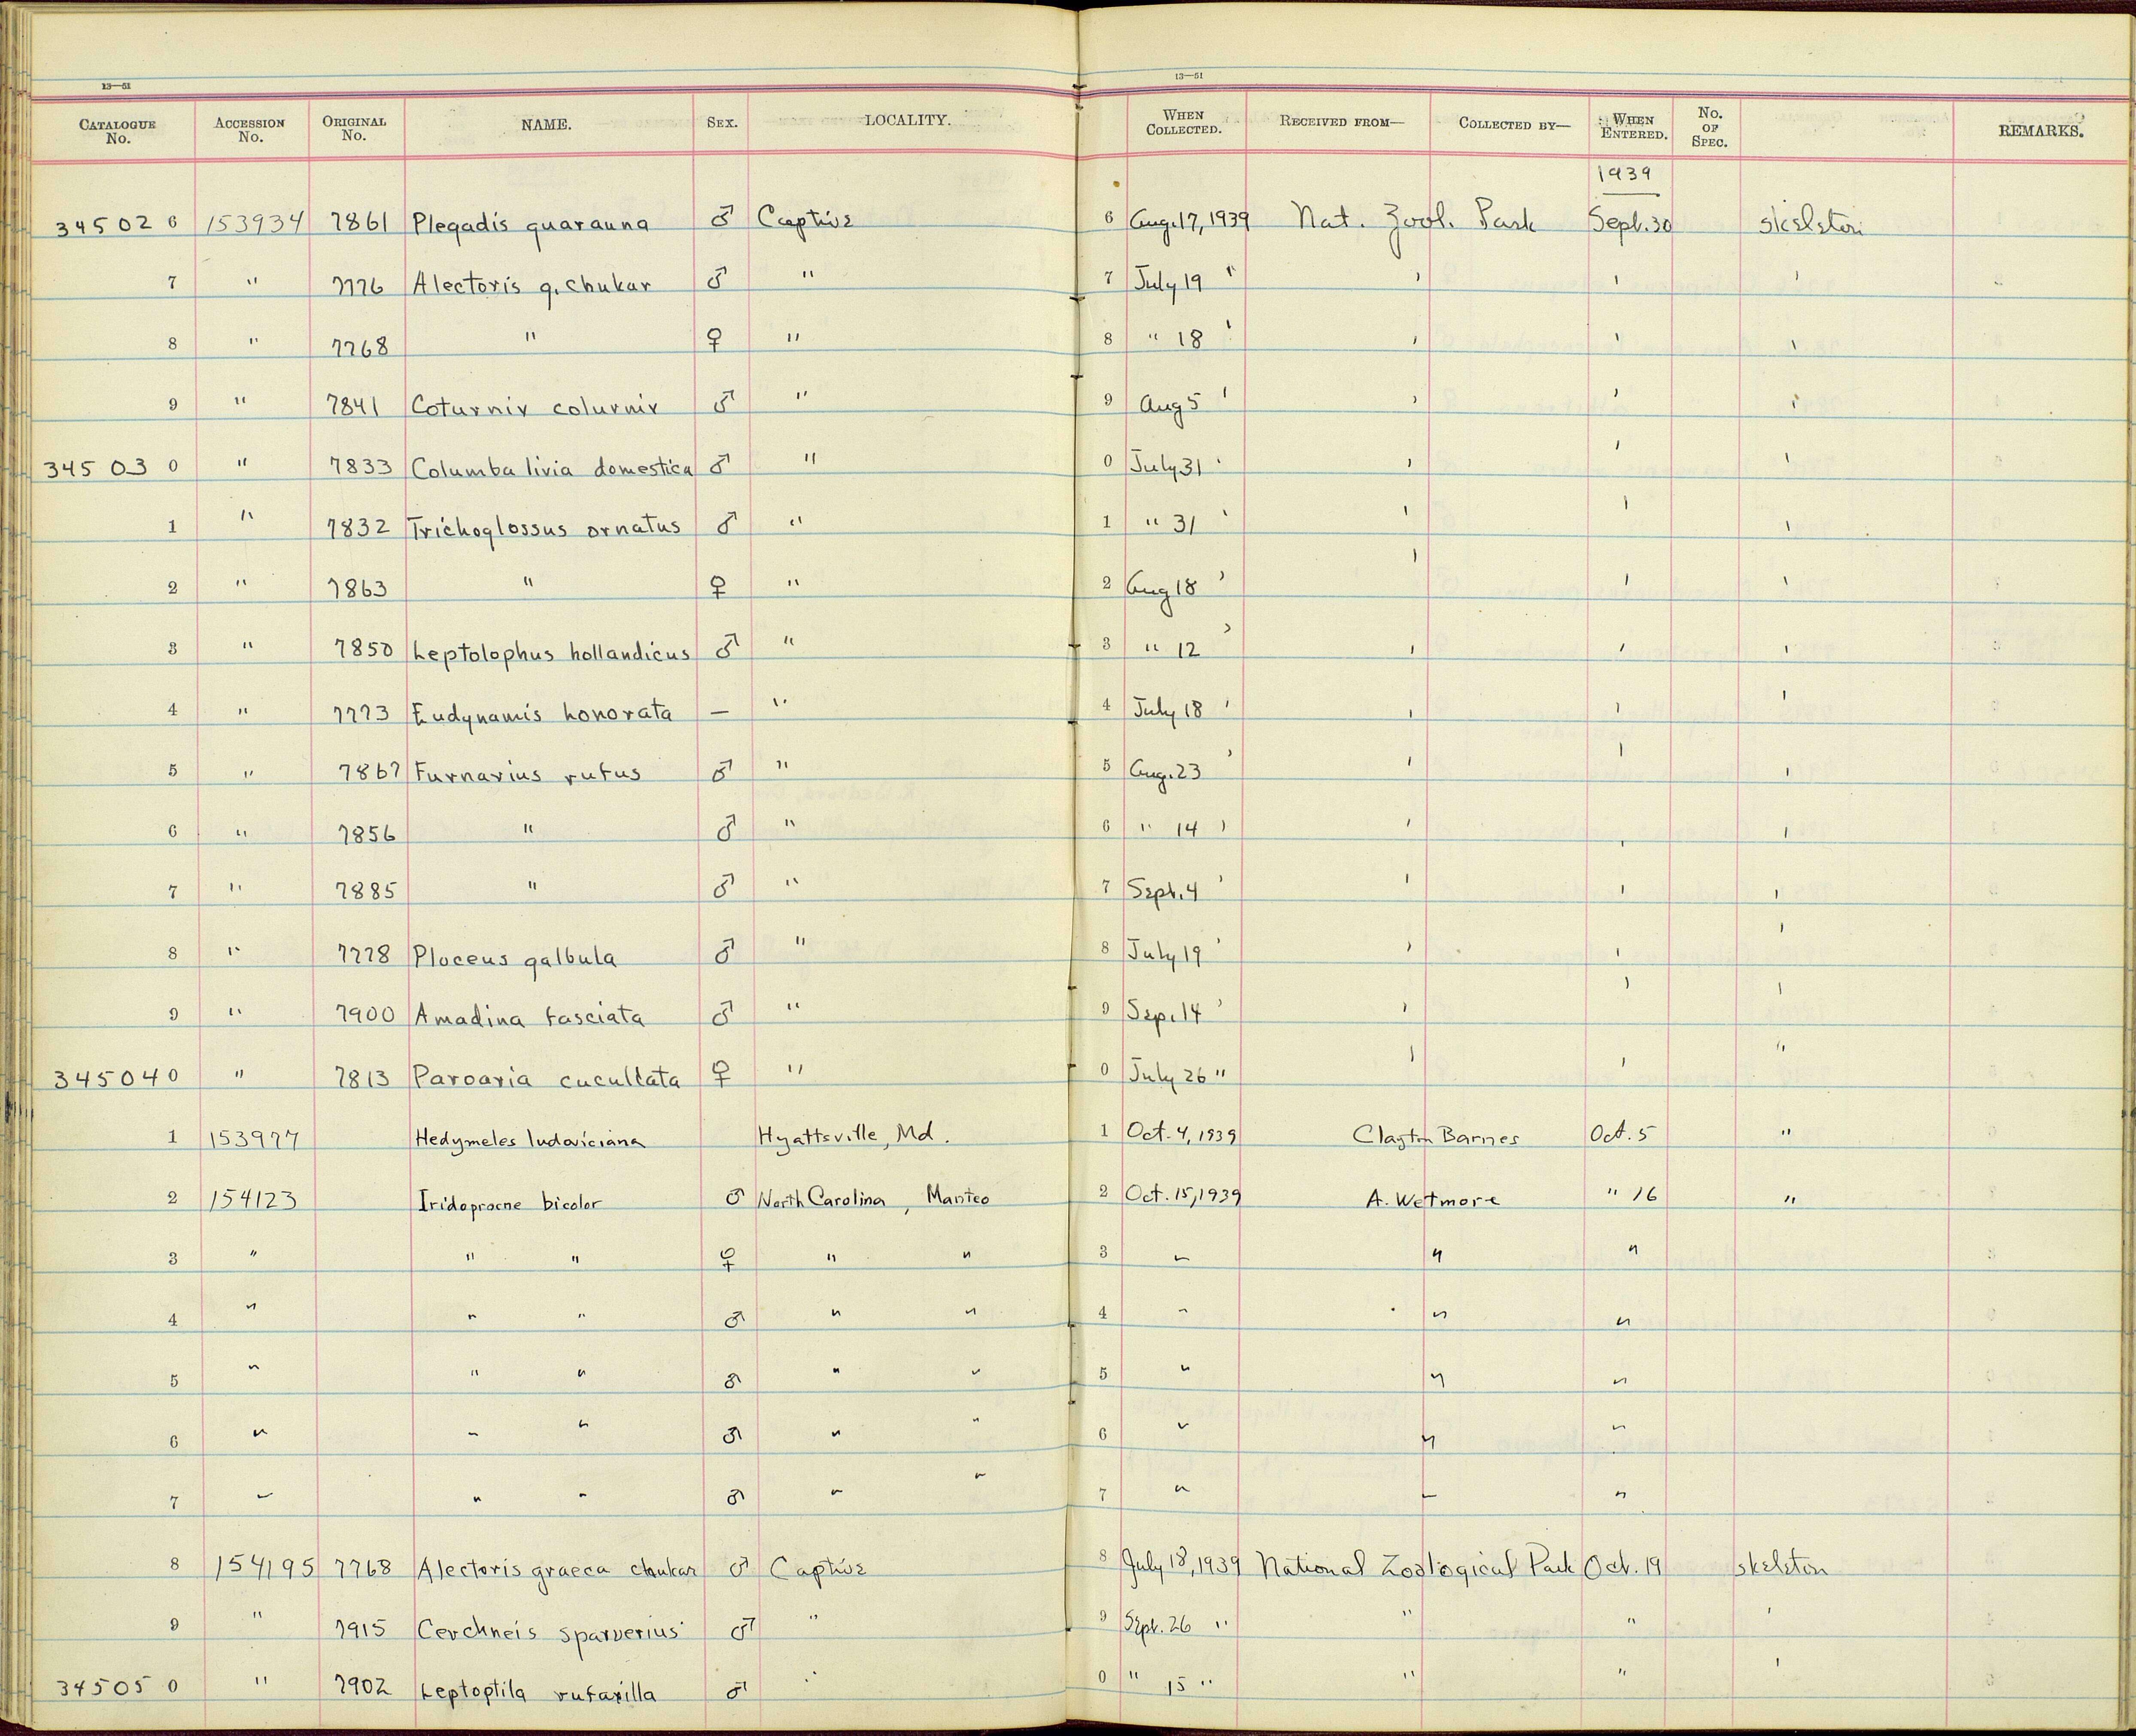 13—51 13—51
CATALOGUE No. ACCESSION No. ORIGINAL No. NAME. SEX. LOCALITY. WHEN COLLECTED. RECEIVED FROM— COLLECTED BY— WHEN ENTERED. No. OF SPEC. REMARKS.
1939
345026 153934 7861 Plegadis guarauna ♂ Captive 6 Aug.17,1939 Nat. Zool. Park Sept.30 skeleton
7 " 7776 Alectoris g. chukar ♂ " 7 July 19 " ' ' '
8 " 7768 " ♀ " 8 " 18 ' ' ' '
9 " 7841 Coturnix coturnix ♂ " 9 Aug 5 ' ' ' '
345030 " 7833 Columba livia domestica ♂ " 0 July 31 ' ' ' '
1 " 7832 Trichoglossus ornatus ♂ " 1 " 31 ' ' ' '
2 " 7863 " ♀ " 2 Aug 18 ' ' ' '
3 " 7850 Leptolophus hollandicus ♂ " 3 " 12 ' ' ' '
4 " 7773 Eudynamis honorata — " 4 July 18 ' ' ' '
5 " 7867 Furnarius rufus ♂ " 5 Aug. 23 ' ' ' '
6 " 7856 " ♂ " 6 " 14 ' ' ' '
7 " 7885 " ♂ " 7 Sept. 4 ' ' ' '
8 " 7778 Ploceus galbula ♂ " 8 July 19 ' ' ' '
9 " 7900 Amadina fasciata ♂ " 9 Sep. 14 ' ' ' '
345040 " 7813 Paroaria cucullata ♀ " 0 July 26 " ' ' "
1 153977 Hedymeles ludoviciana Hyattsville, Md. 1 Oct. 4, 1939 Clayton Barnes Oct. 5 "
2 154123 Iridoprocne bicolor ♂ North Carolina, Manteo 2 Oct. 15, 1939 A. Wetmore " 16 "
3 " " " ♀ " " 3 " " "
4 " " " ♂ " " 4 " " "
5 " " " ♂ " " 5 " " "
6 " " " ♂ " " 6 " " "
7 " " " ♂ " " 7 " " "
8 154195 7768 Alectoris graeca chukar ♂ Captive 8 July 18, 1939 National Zoological Park Oct. 19 skeleton
9 " 7915 Cerchneis sparverius ♂ " 9 Sept. 26 " " " '
345050 " 7902 Leptoptila rufaxilla ♂ " 0 " 15 " " " '